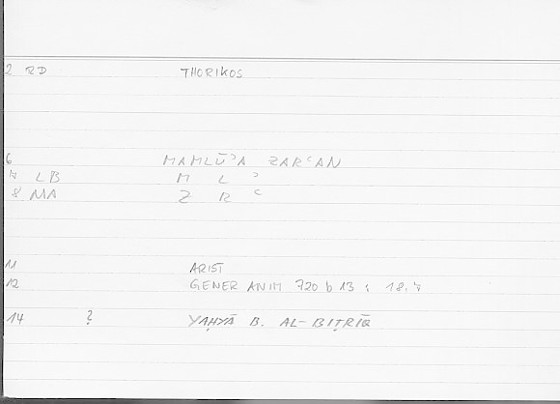 2 RD THORIKOS
6 MAMLŪʾA ZARʿAN
7 LB M L ʾ
8 MA Z R ʿ
11 ARIST
12 GENER ANIM 720 b 13 : 18,7
14 ? YAḤYĀ B. AL-BIṬRĪQ